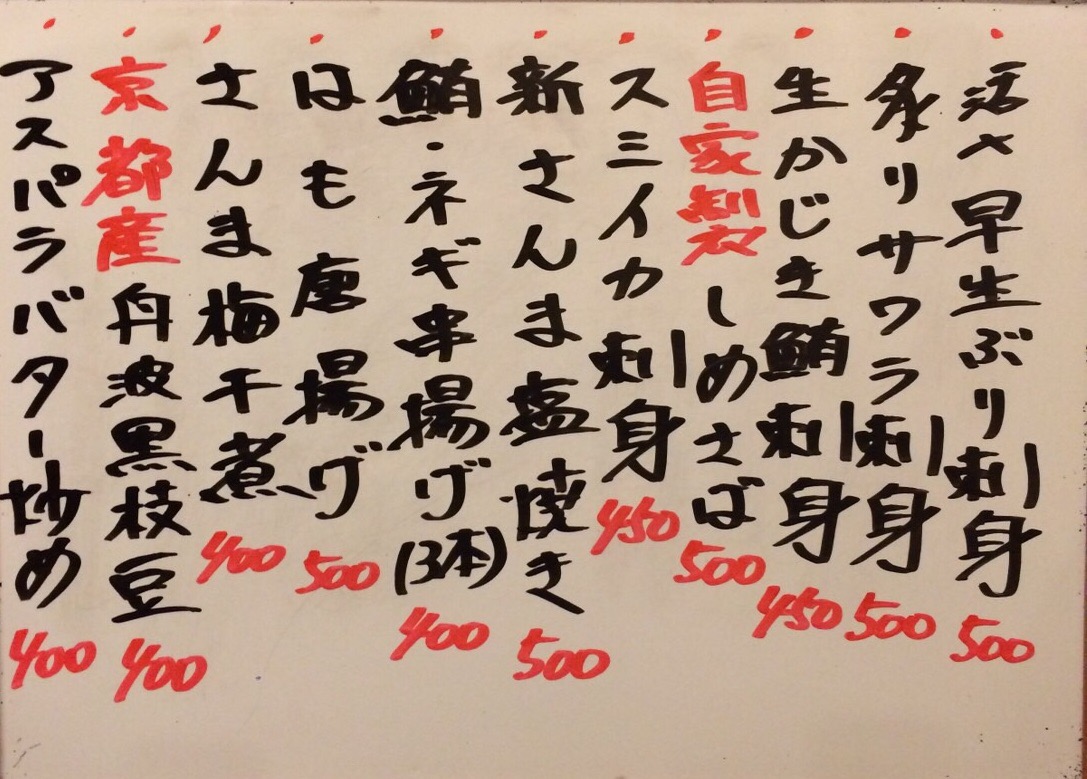 活〆早生ぶり刺身 500
炙りサワラ刺身 500
生かじき鮪刺身 450
自家製しめさば 500
スミイカ刺身 450
新さんま塩焼き 500
鮪・ネギ串揚げ(3本) 400
はも唐揚げ 500
さんま梅干煮 400
京都産丹波黒枝豆 400
アスパラバター炒め 400